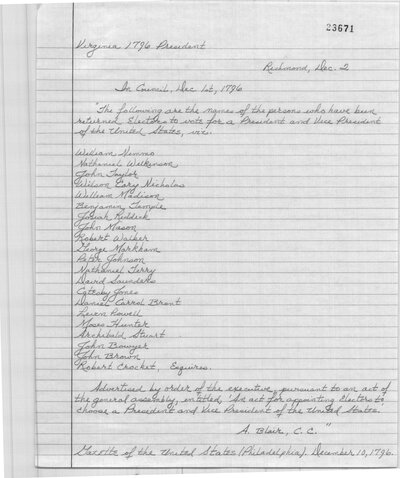 23671
Virginia 1796 President
Richmond, Dec. 2
In Council, Dec 1st, 1796
"The following are the names of the persons who have been
returned Electors to vote for a President and Vice President
of the United States, viz.
William Nimmo
Nathaniel Wilkinson
John Taylor
Wilson Cary Nicholas
William Madison
Benjamin Temple
Josiah Riddick
John Mason
Robert Walker
George Markham
Peter Johnson
Nathaniel Terry
David Saunders
Catesby Jones
Daniel Carrol Brent
Leven Powell
Moses Hunter
Archibald Stuart
John Bowyer
John Brown
Robert Crocket, Esquires.
Advertised by order of the executive, pursuant to an act of
the general assembly, entitled, 'An act for appointing Electors to
choose a President and Vice President of the United States.
A. Blair, C. C."
Gazette of the United States (Philadelphia). December 10, 1796.